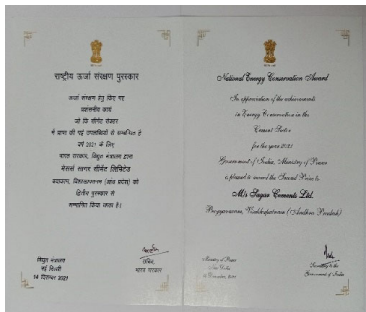 राष्ट्रीय ऊर्जा संरक्षण पुरस्कार
ऊर्जा संरक्षण हेतु किए गए
प्रशंसनीय कार्य
जो कि सीमेंट सेक्टर
में प्राप्त की गई उपलब्धियों से सम्बन्धित है
वर्ष 2021 के लिए
भारत सरकार, विद्युत मंत्रालय द्वारा
मेसर्स सागर सीमेंट लिमिटेड
को
द्वितीय पुरस्कार से
सम्मानित किया जाता है।
विद्युत मंत्रालय
नई दिल्ली
14 दिसम्बर 2021
सचिव,
भारत सरकार
National Energy Conservation Award
In appreciation of the achievements
in Energy Conservation in the
Cement Sector
for the year 2021
Government of India, Ministry of Power
is pleased to award the Second Prize to
M/s Sagar Cements Ltd.
(Andhra Pradesh)
Ministry of Power
New Delhi
December, 2021
Secretary to the
Government of India